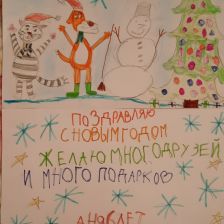 ПОЗДРАВЛЯЮ
С НОВЫМ ГОДОМ
ЖЕЛАЮ МНОГО ДРУЗЕЙ
И МНОГО ПОДАРКОВ